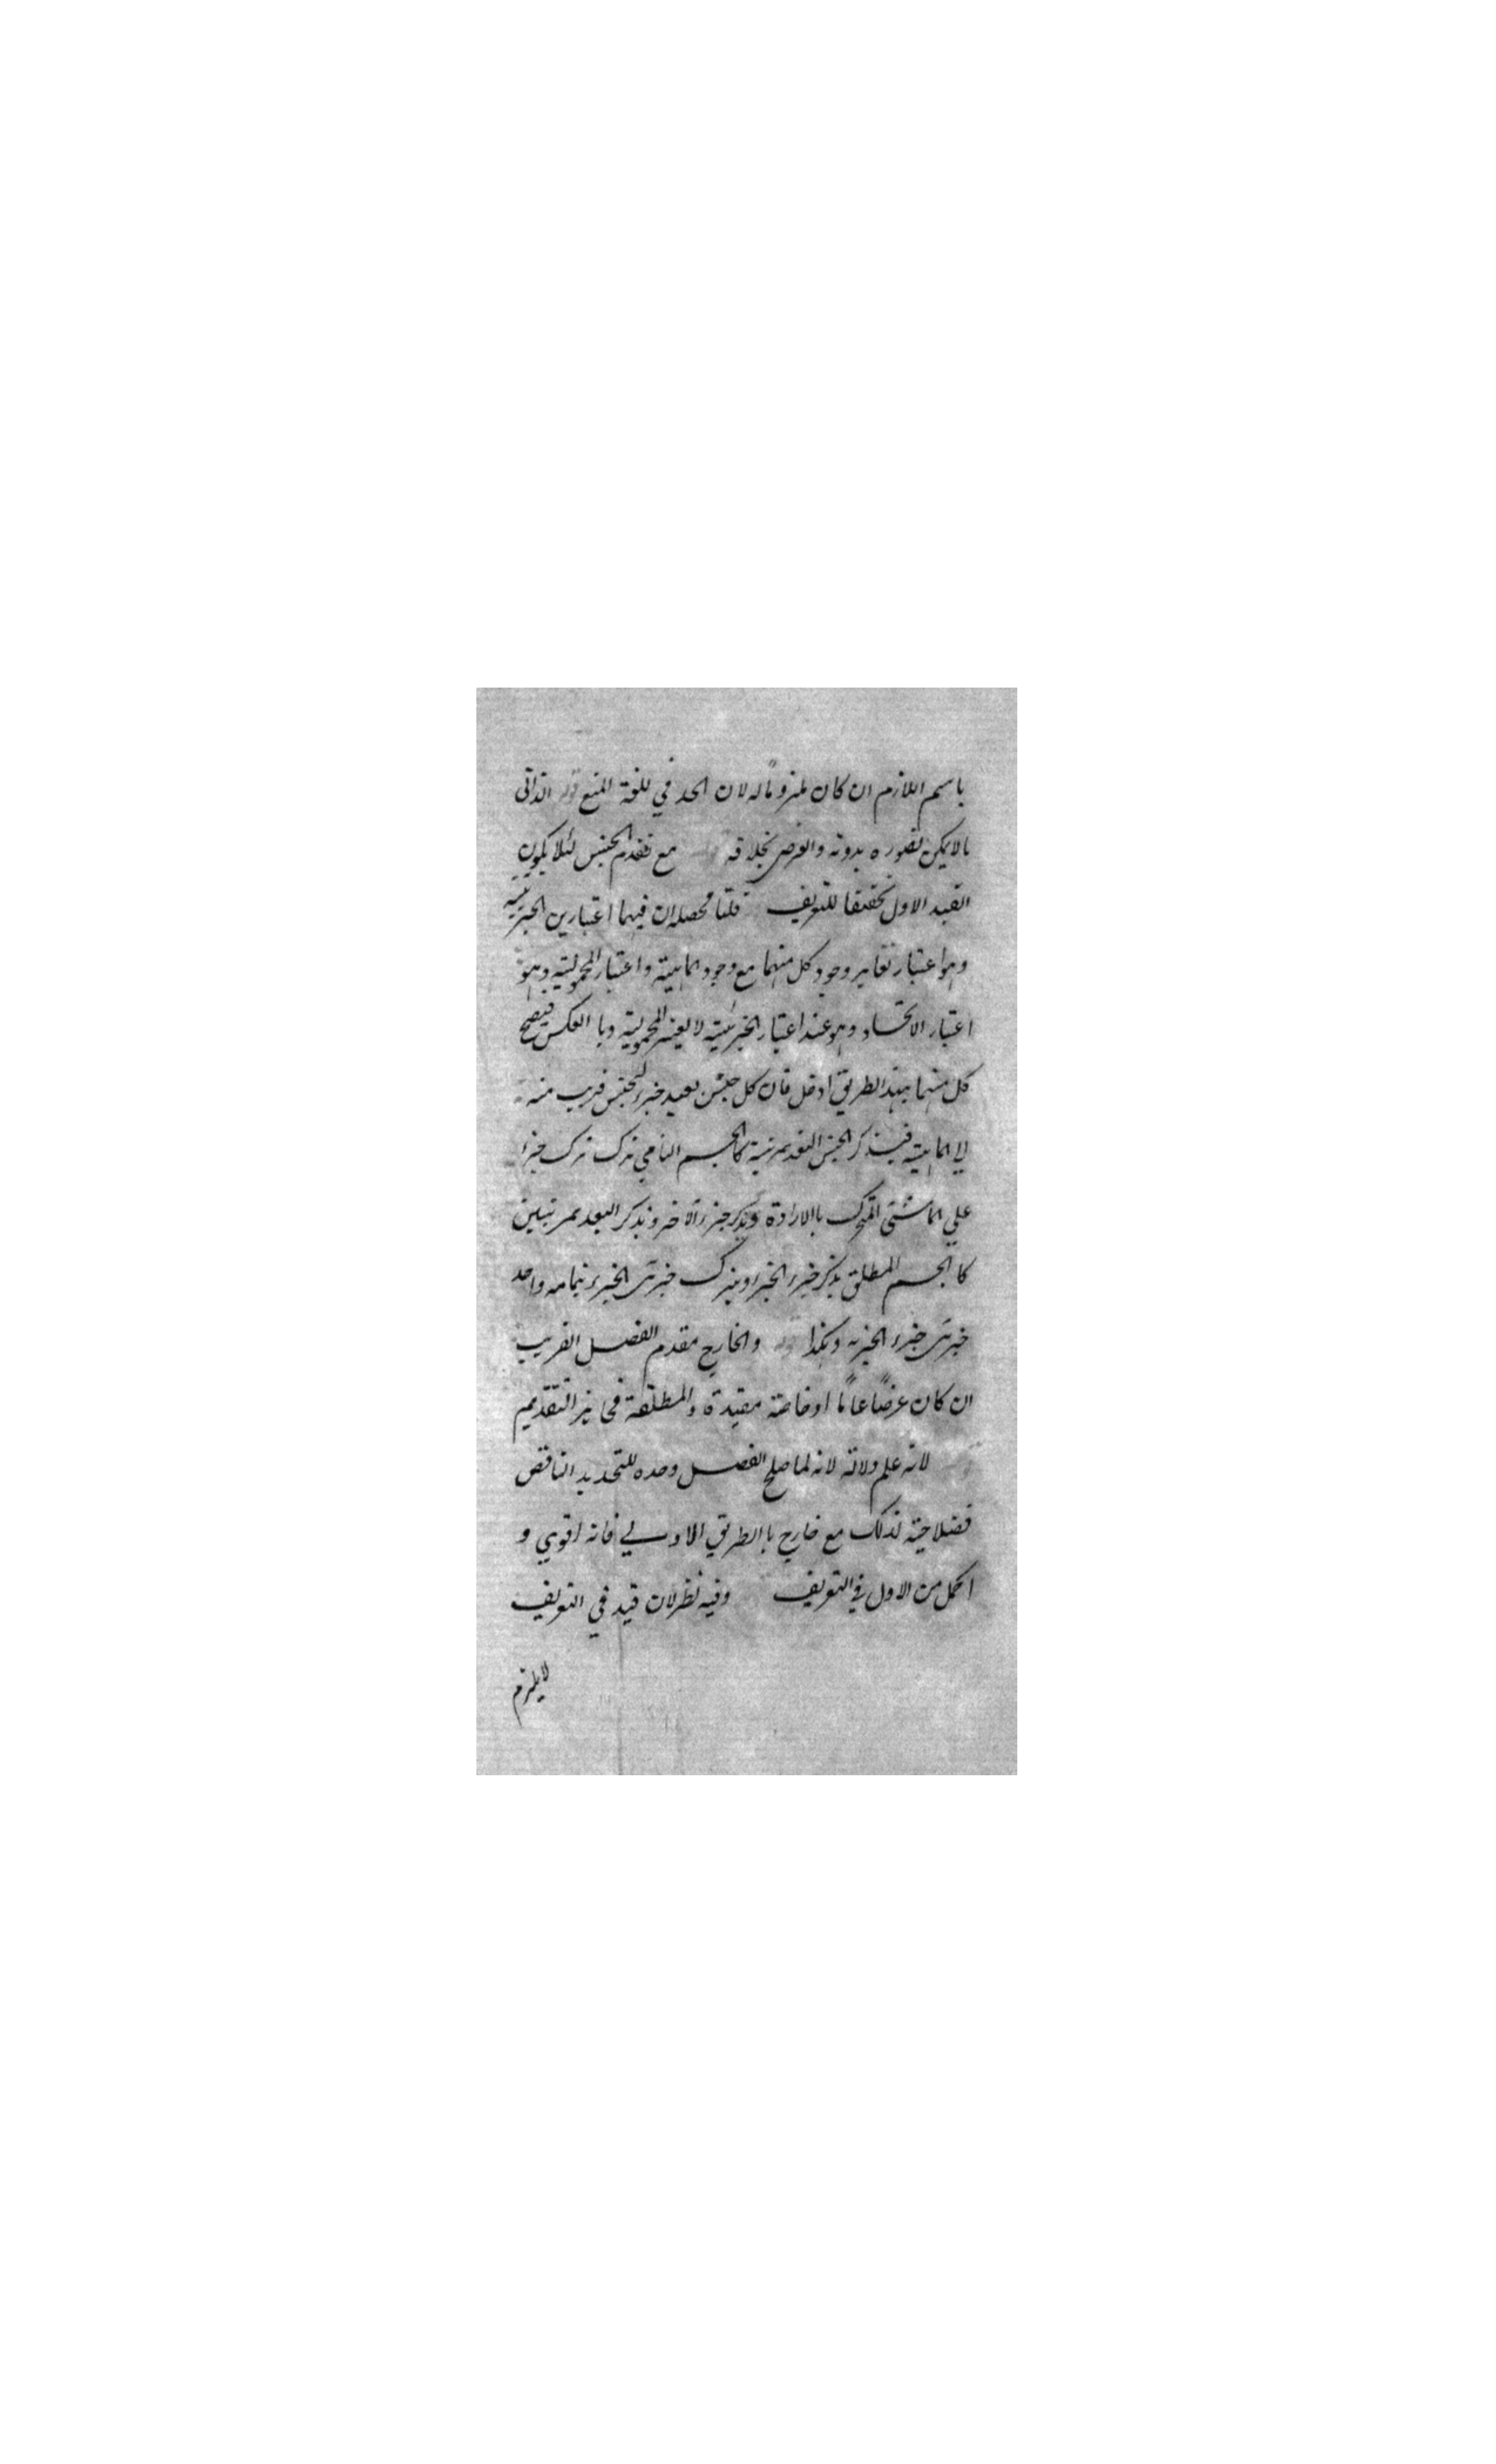 باسم اللازم ان كان ملزوماً له لان الحد في للغة المنع قوله الذاتى
مالا يمكن تصوره بدونه والعرض بخلافه قوله مع تقدم الجنس لئلا يكون
القيد الاول تحقيقا للتعريف قلنا محصله ان فيهما اعتبارين الجزئية
وهو اعتبار تغاير وجود كل منهما مع وجود الماهية واعتبار المحمولية وهو
اعتبار الاتحاد وهو عند اعتبار الجزئية لا يعتبر المحمولية وبا العكس فيصح
كل منهما بهذا الطريق ادخل فان كل جنس بعيد جزء لجنس قريب منه
لا الماهية فيذكر الجنس البعد بمرتبة كالجسم النامي نزك ترك جزء
علي الماشى المتحرك باالارادة ويذكر جزء الآخر وبذكر البعد بمرتبتين
كا الجسم المطلق يذكر جزء الجزء ويترك جزئى الجزء بتمامه واحد
جزئى جزء الجزء وهكذا قوله والخارج مقدم الفصل القريب
ان كان عرضاً عاماً او خاصة مقيدة والمطلقة فى خير التقديم
لانه علم ولانه لانه لما صلح الفصل وحده للتحديد الناقص
فصلاحيته لذلك مع خارج باالطريق الاولي فانه اقوي و
اكمل من الاول في التعريف وفيه نظر لان قيد في التعريف
لا يلزم